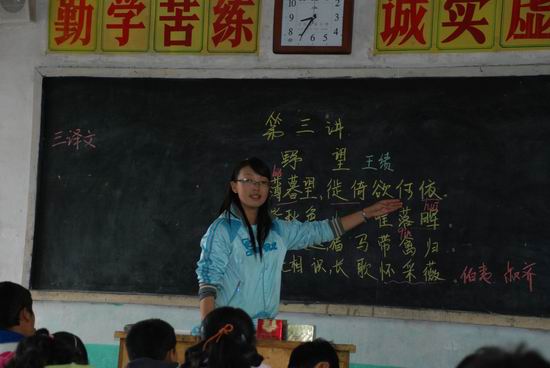 勤学苦练
诚实虚
三译文
第三讲
野望 王绩
薄暮望,徙倚欲何依.
秋色 落晖.
猎马带禽归.
相识,长歌怀采薇. 伯夷 叔齐